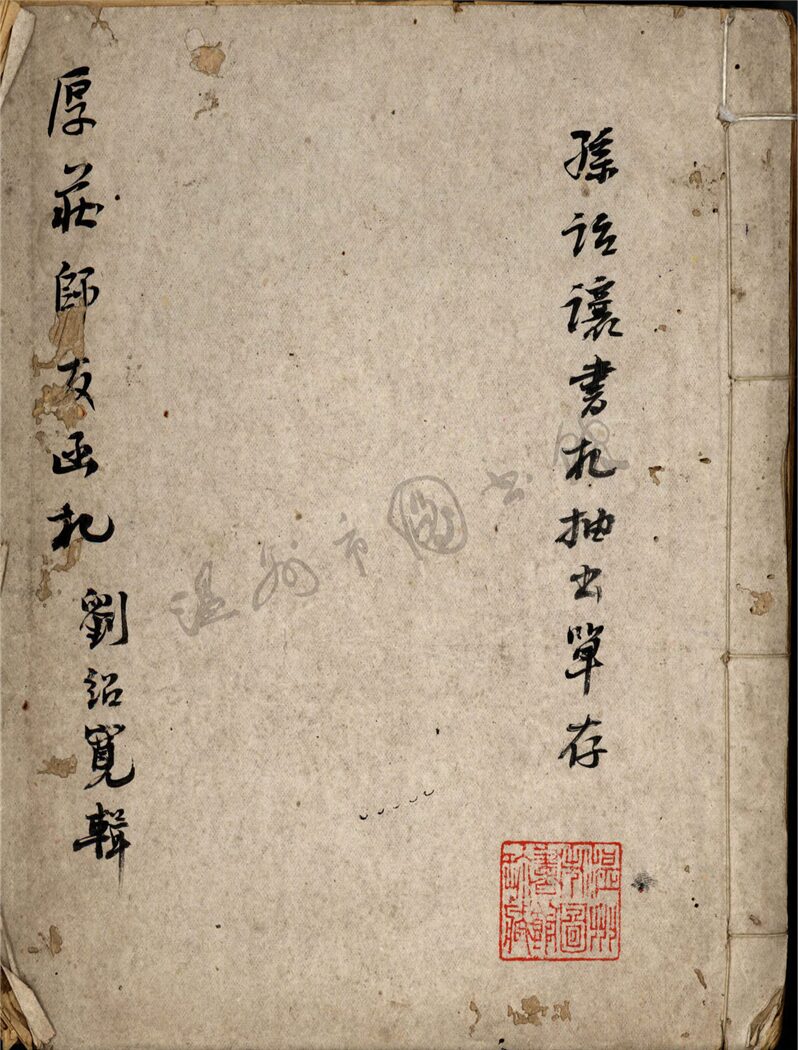 孫詒讓書札抽出單存
厚莊師友函札
劉紹寬輯
温州市圖書館
温州市圖書館所藏